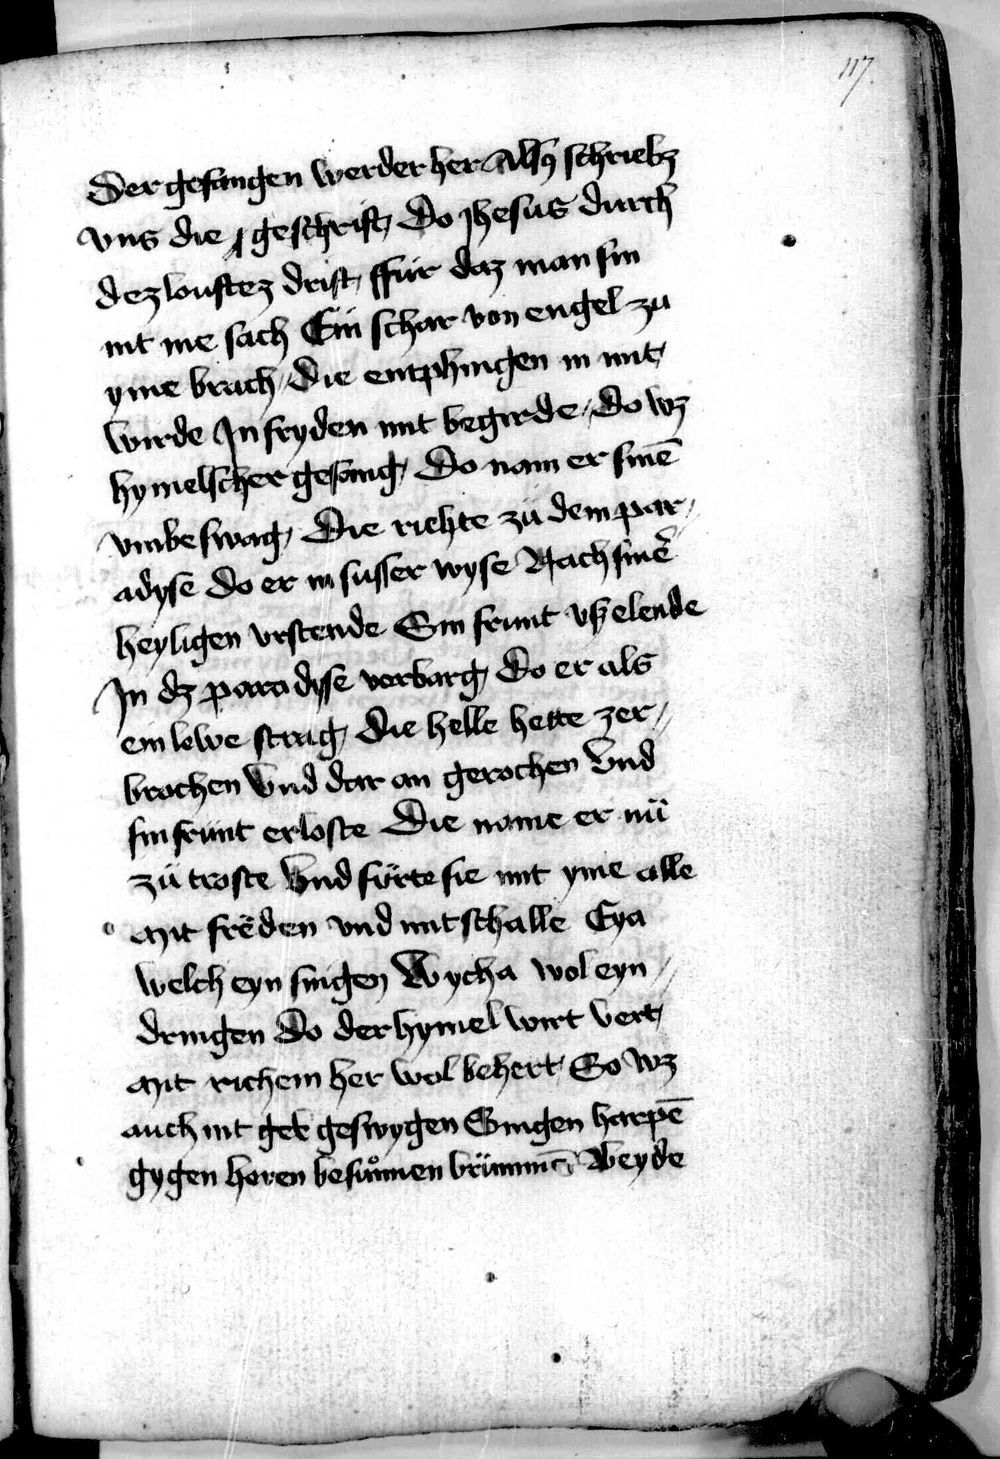 117.
Der gefangen werder her Alsꝰ schriebz
Vns die geschrift, Do jhesus durch
dez loustez drift, ffür daz man sin
nit me sach Ein schar von engel zu
yme brach, Die entphingen in mit
wirde In fryden mit begirde, Do wz
hymelscher gesang, Do nam er sinē
vmbeswag, Die riehte zü dem par,
adyse Do er in susser wyse Nach sinē
heyligen vrstende Sin frunt vß elende
In dz paradyse verbarg, Do er als
ein lewe starg, Die helle hette zer,
brochen Vnd dar an gerochen Vnd
sin frünt erloste Die name er nü
zü troste Vnd fürte sie mit yme alle
Mit frëden vnd mit schalle Eya
welch eyn singen Wycha wol eyn
dringen Do der hymel wirt vert,
Mit richem her wol behert, So wz
auch nit get geswygen Singen harpē
gygen horen besunnen brümmē Beyde